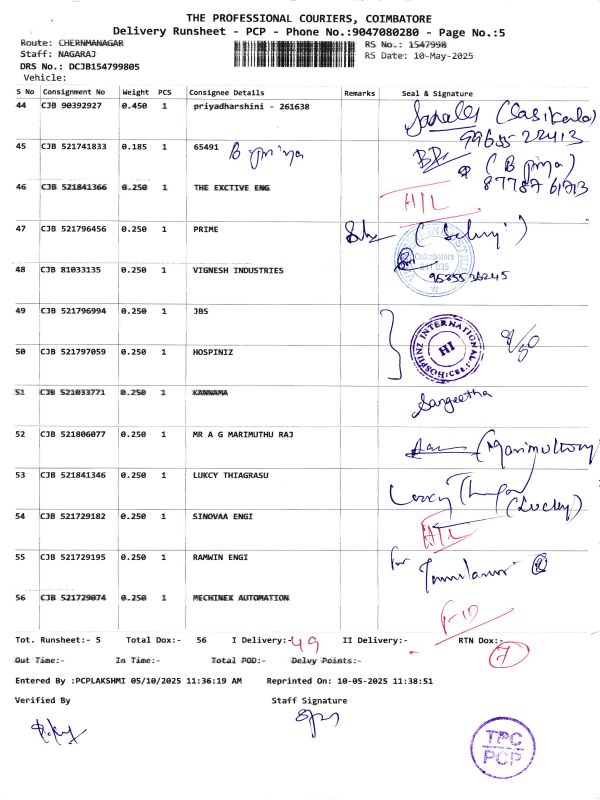 THE PROFESSIONAL COURIERS, COIMBATORE
Delivery Runsheet - PCP - Phone No.:9047080280 - Page No.:5
Route: CHERNMANAGAR
RS No.: 1547998
Staff: NAGARAJ
RS Date: 10-May-2025
DRS No.: DCJB154799805
Vehicle:
S No Consignment No Weight PCS Consignee Details Remarks Seal & Signature
44 CJB 90392927 0.450 1 priyadharshini - 261638 (Sasikala)
99655-22413
45 CJB 521741833 0.185 1 65491 B priya
(B priya)
87787 61713
46 CJB 521841366 0.250 1 THE EXCTIVE ENG H/L
47 CJB 521796456 0.250 1 PRIME
48 CJB 81033135 0.250 1 VIGNESH INDUSTRIES
Coimbatore
49 CJB 521796994 0.250 1 JBS
HOSPIINZ INTERNATIONAL
HI
50 CJB 521797059 0.250 1 HOSPINIZ
51 CJB 521033771 0.250 1 KANNAMA Sangeetha
52 CJB 521806077 0.250 1 MR A G MARIMUTHU RAJ
53 CJB 521841346 0.250 1 LUKCY THIAGRASU
(Lucky)
54 CJB 521729182 0.250 1 SINOVAA ENGI H/L
55 CJB 521729195 0.250 1 RAMWIN ENGI for
56 CJB 521729074 0.250 1 MECHINEX AUTOMATION
Tot. Runsheet:- 5 Total Dox:- 56 I Delivery:- 49 II Delivery:- RTN Dox:- 7
Out Time:- In Time:- Total POD:- Delvy Points:-
Entered By :PCPLAKSHMI 05/10/2025 11:36:19 AM Reprinted On: 10-05-2025 11:38:51
Verified By Staff Signature
TPC
PCP